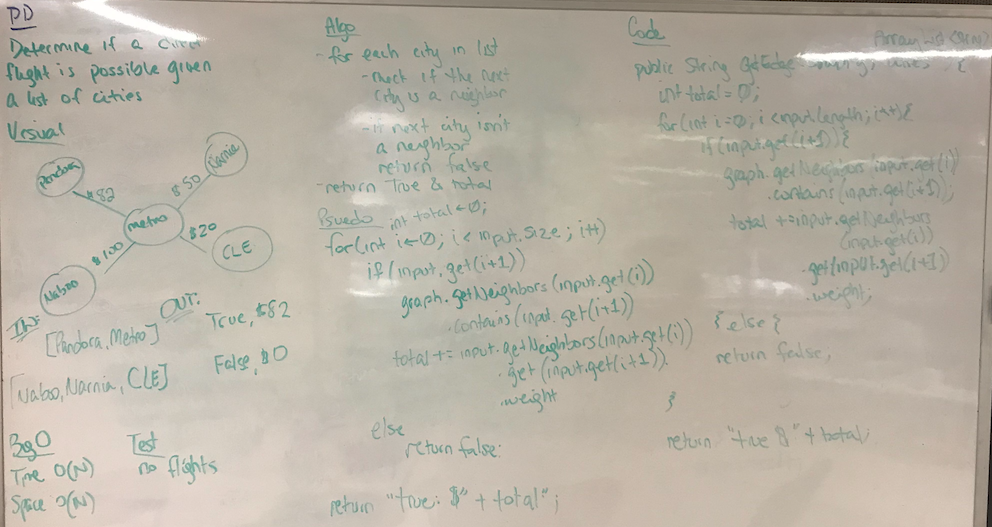 PD
Determine if a
flight is possible given
a list of cities
Visual
Pandora
Narnia
$82
$50
metro
$100
$20
CLE
Naboo
IN:
OUT:
[Pandora, Metro]
True, $82
[Naboo, Narnia, CLE]
False, $0
Big O
Time O(N)
Space O(N)
Test
no flights
Algo
- for each city in list
- check if the next
city is a neighbor
- if next city isn't
a neighbor
return false
- return True & total
Psuedo
int total ← 0;
for(int i ← 0; i < input.size; i++)
if(input.get(i+1))
graph.getNeighbors(input.get(i))
.contains(input.get(i+1))
total += input.getNeighbors(input.get(i))
.get(input.get(i+1)).
.weight
else
return false;
return "true: $" + total";
Code
ArrayList
public String GetEdge {
int total = 0;
for(int i=0; i < input.length; i++){
if(input.get(i+1)){
graph.getNeighbors input.get(i)
.contains(input.get(i+1);
total += input.getNeighbors
(input.get(i))
.get(input.get(i+1)
.weight;
} else {
return false;
}
return "true $" + total;